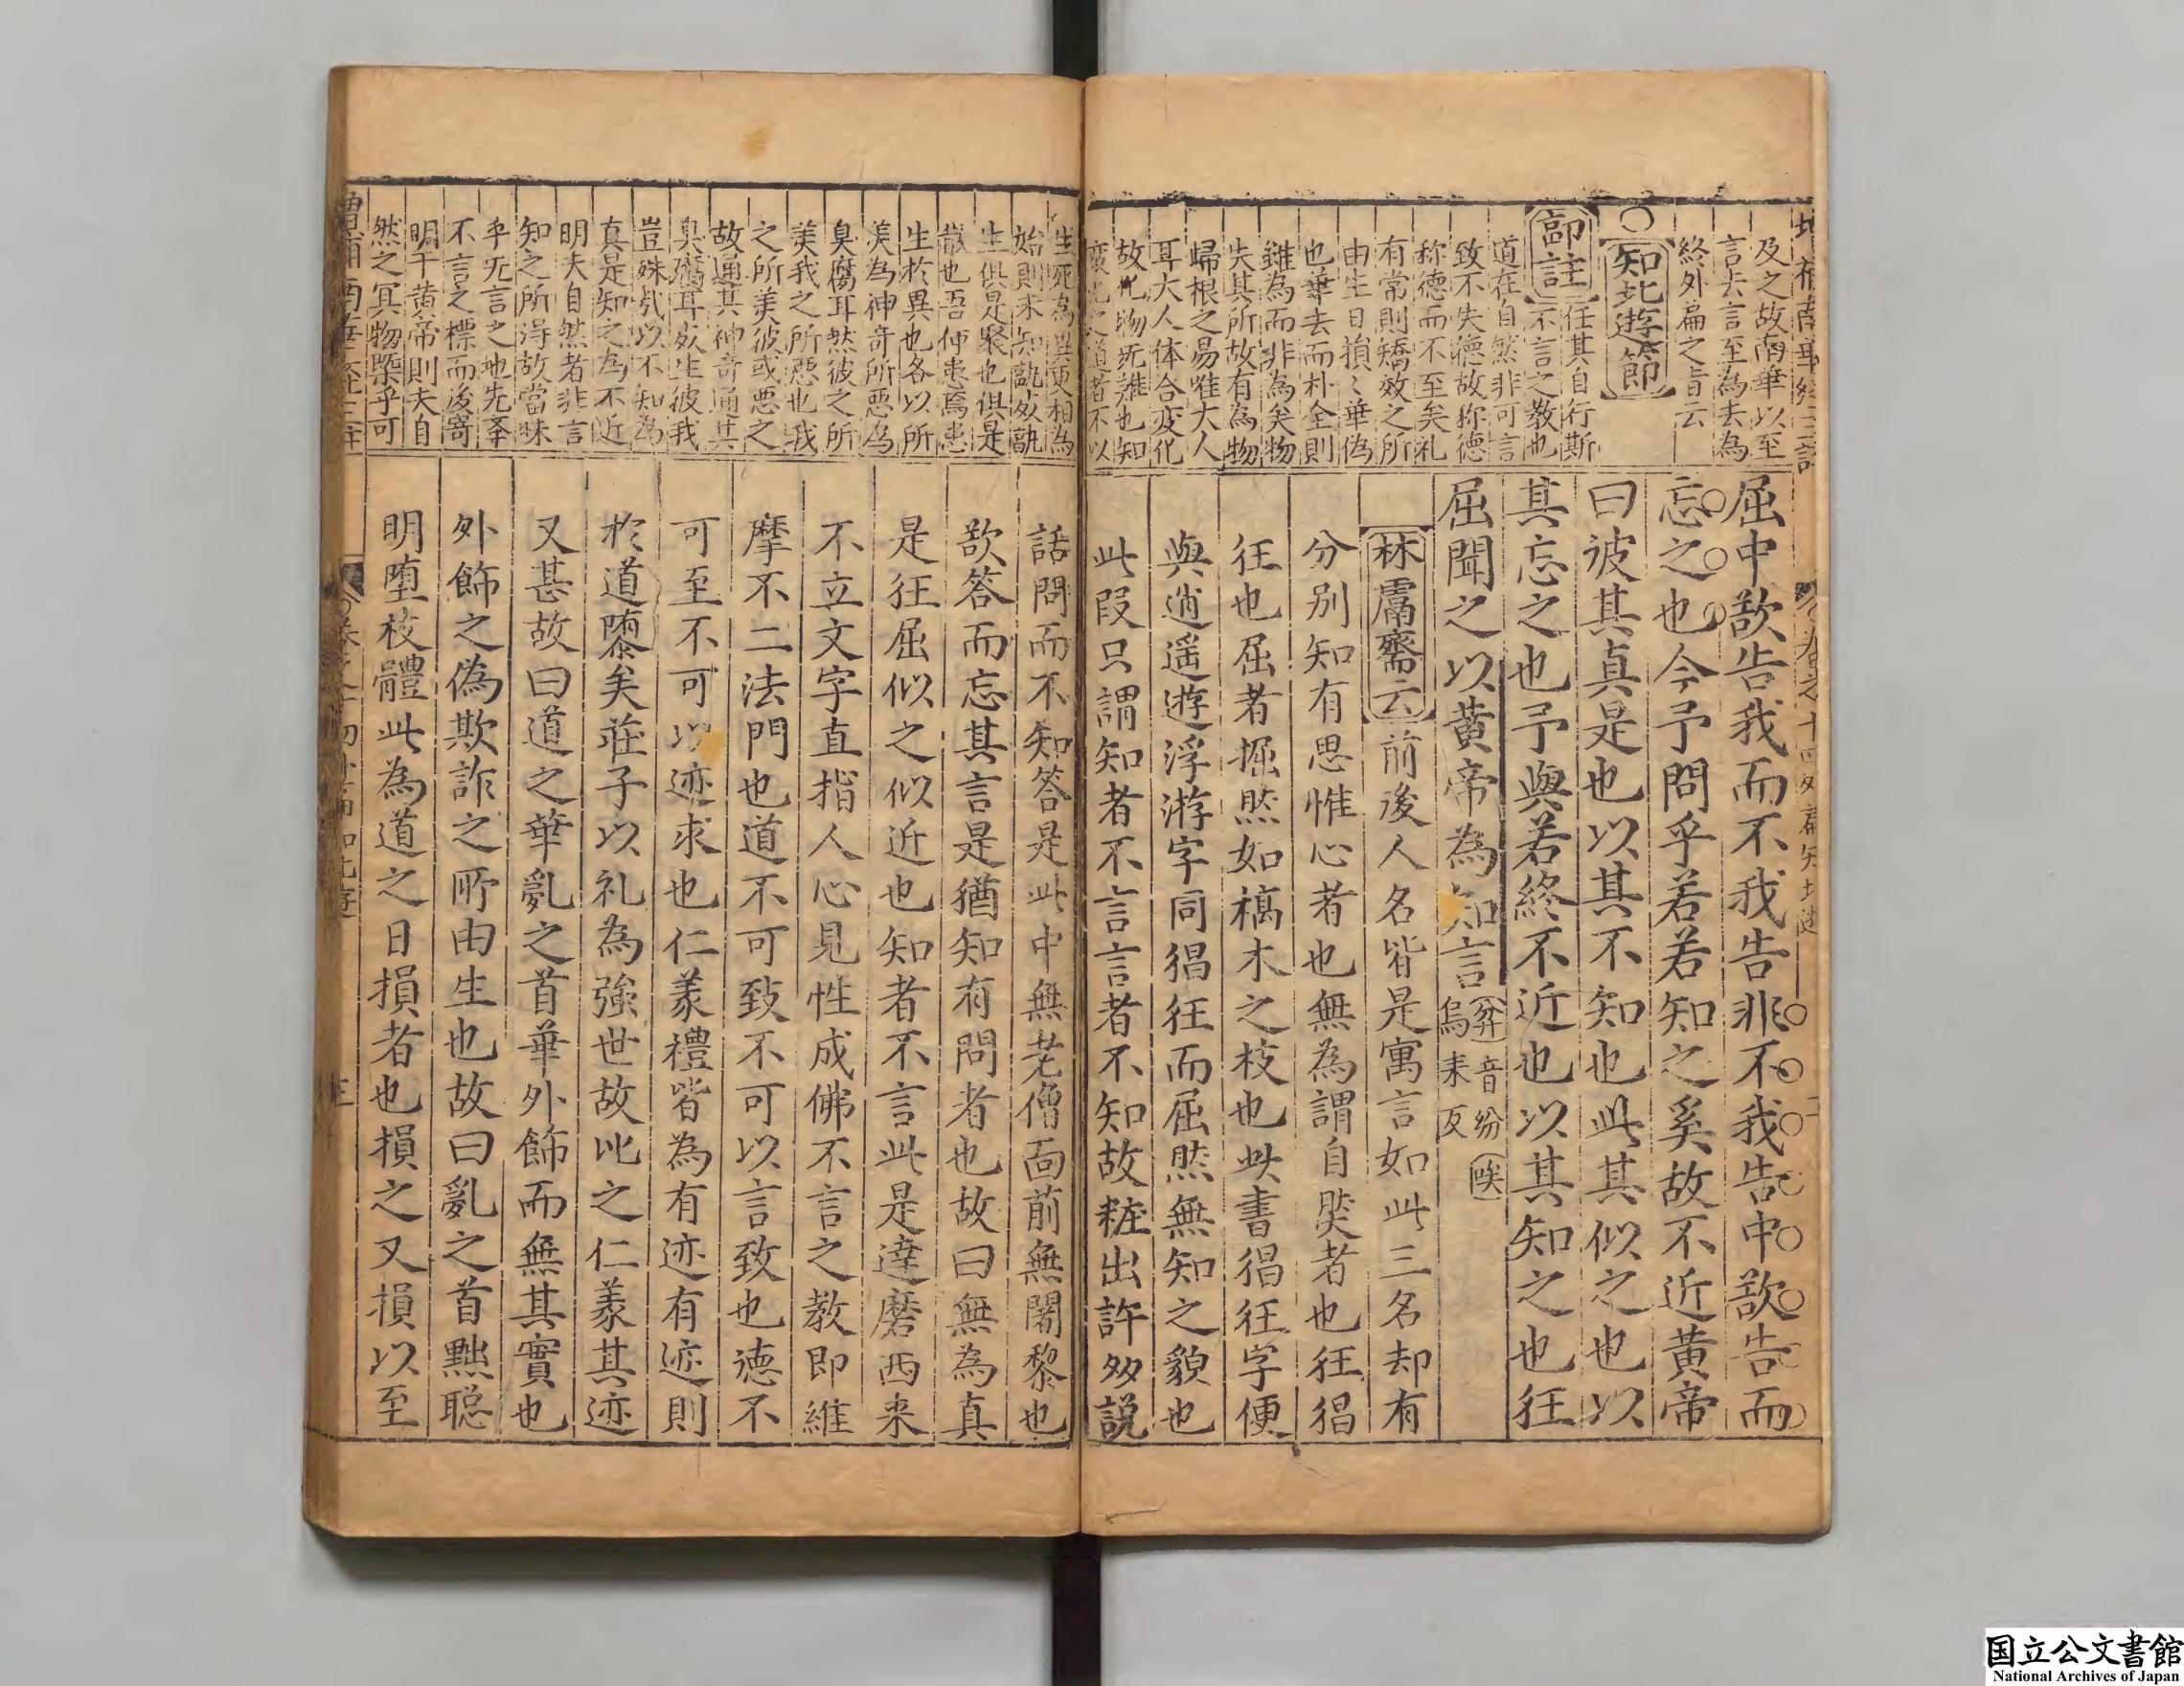 及之故南華以至
言去言至為去為
終外扁之旨云
知北遊節
郭註
任其自行斯
不言之教也
道在自然非可言
致不失德故称德
称德而不至矣礼
有常則矯效之所
由生日損〻華偽
也華去而朴全則
雖為而非為矣物
失其所故有為物
歸根之易唯大人
耳大人体合変化
故化物旡難也知
変化之道者不以
屈中欲告我而不我告非不我告中欲告而
忘之也今予問乎若若知之奚故不近黄帝
曰彼其真是也以其不知也此其似之也以
其忘之也予與若終不近也以其知之也狂
屈聞之以黄帝為知言
弅音紛唉
烏来反
林鬳齋云前後人名皆是寓言如此三名却有
分別知有思惟心者也無為謂自䏁者也狂猖
狂也屈者掘㷋如槁木之枝也此書猖狂字便
與逍遥遊浮游字同猖狂而屈㷋無知之貌也
此段只謂知者不言言者不知故粧出許多説
生死為異更相為
始則未知孰死孰
生俱是聚也俱是
散也吾何患焉患
生於異也各以所
美為神奇所惡為
臭腐耳然彼之所
美我之所惡也我
之所美彼或惡之
故通共神奇通共
臭腐耳死生彼我
豈殊哉以不知為
真是知之為不近
明夫自然者非言
知之所得故當昧
乎旡言之地先𠦑
不言之標而後寄
明于黄帝則夫自
然之冥物槩乎可
話問而不知答是此中無老僧靣前無闍黎也
欲答而忘其言是猶知有問者也故曰無為真
是狂屈似之似近也知者不言此是達磨西来
不立文字直指人心見性成佛不言之教即維
摩不二法門也道不可致不可以言致也德不
可至不可以迹求也仁義禮皆為有迹有迹則
於道隳矣莊子以礼為強世故比之仁義其迹
又甚故曰道之華亂之首華外飾而無其實也
外飾之偽欺詐之所由生也故曰亂之首黜聡
明堕枝體此為道之日損者也損之又損以至
国立公文書館
National Archives of Japan